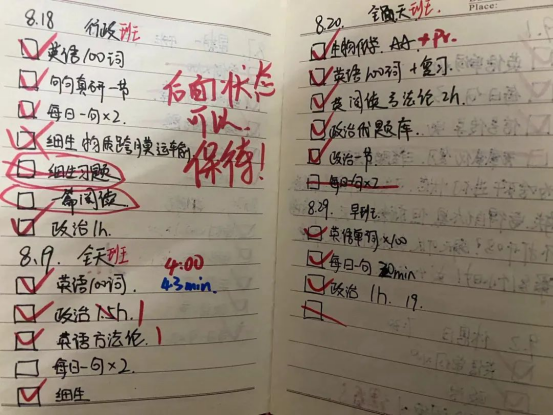 8.18 行政班
英语100词
句句真研一节
每日一句×2.
细生 物质跨膜运输
细生习题
一篇阅读
政治1h.
后面状态
可以
保待!
8.19. 全天班
英语100词.
4:00
43min.
政治1.5h. 1
英语方法论. 1
每日一句×2.
细生
Place:
8.20. 全天班.
生物化学. AA. + Pr.
英语100词+复习.
英阅读方法论 2h.
政治刷题库.
政治一节.
每日一句×2
8.29. 早班
英语单词×100
每日一句 30min
政治 1h. 19.